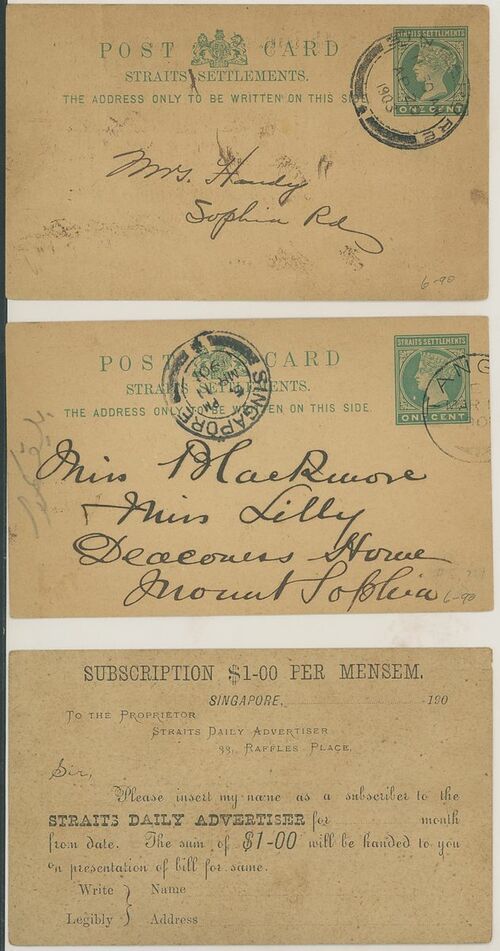 POST CARD
STRAITS SETTLEMENTS.
THE ADDRESS ONLY TO BE WRITTEN ON THIS SIDE.
STRAITS SETTLEMENTS
ONE CENT
1903
Mrs. Handy
Sophia Rd
6-90
POST CARD
STRAITS SETTLEMENTS.
THE ADDRESS ONLY TO BE WRITTEN ON THIS SIDE.
STRAITS SETTLEMENTS
ONE CENT
SINGAPORE
PM
ANG
Miss Blackmore
Miss Lilly
Deaconess Home
Mount Sophia
6-90
SUBSCRIPTION $1-00 PER MENSEM.
SINGAPORE, 190
TO THE PROPRIETOR
STRAITS DAILY ADVERTISER
33, RAFFLES PLACE,
Sir,
Please insert my name as a subscriber to the
STRAITS DAILY ADVERTISER for month
from date. The sum of $1-00 will be handed to you
on presentation of bill for same.
Write } Name
Legibly } Address